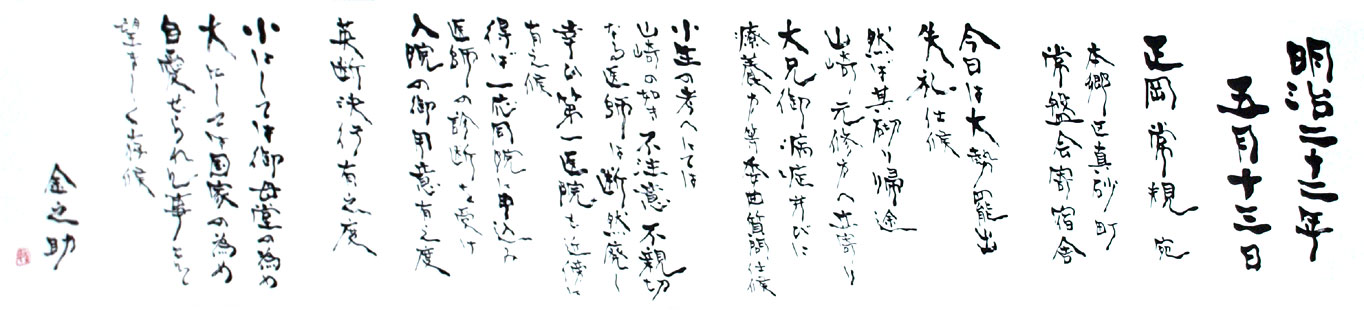 明治二十二年
五月十三日
正岡常規 宛
本郷区真砂町
常盤会寄宿舎
今日は大勢罷出
失礼仕候
然ば其砌り帰途
山崎元修方へ立寄り
大兄御病症并びに
療養方等委曲質問仕候
小生の考へにては
山崎の如き不注意不親切
なる医師は断然廃し
幸ひ第一医院も近傍に
有之候
得ば一応同院に申込み
医師の診断を受け
入院の御用意有之度
英断決行有之度
小にしては御母堂の為め
大にしては国家の為め
自愛せられん事こそ
望ましく存候
金之助